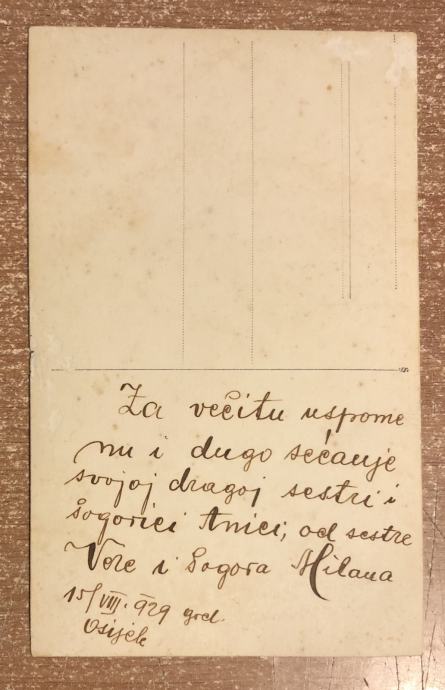 Za večitu uspome
nu i dugo sećanje
svojoj dragoj sestri i
šogorici Anici, od sestre
Vere i šogora Milana
15/VIII. 929 god.
Osijek